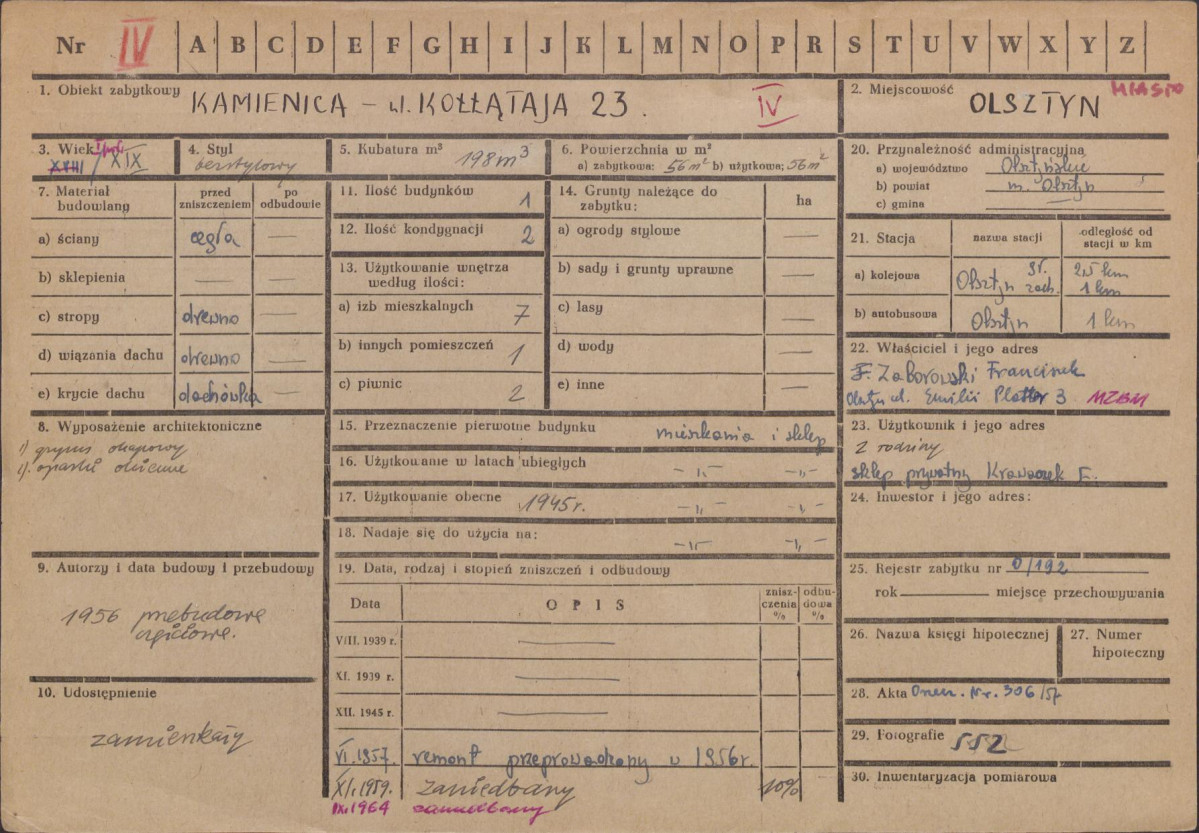 Nr IV A B C D E F G H I J K L M N O P R S T U V W X Y Z
1. Obiekt zabytkowy KAMIENICA - ul. KOŁŁĄTAJA 23. IV
2. Miejscowość OLSZTYN MIASTO
3. Wiek XVIII / XIX
4. Styl bezstylowy
5. Kubatura m³ 198 m³
6. Powierzchnia w m²
a) zabytkowa: 56 m² b) użytkowa: 56 m²
7. Materiał budowlany
przed zniszczeniem
po odbudowie
a) ściany cegła —
b) sklepienia — —
c) stropy drewno —
d) wiązania dachu drewno —
e) krycie dachu dachówka —
8. Wyposażenie architektoniczne
1) gzyms okapowy
2) opaski okienne
9. Autorzy i data budowy i przebudowy
1956 przebudowa
częściowa.
10. Udostępnienie
zamieszkały
11. Ilość budynków 1
12. Ilość kondygnacji 2
13. Użytkowanie wnętrza
według ilości:
a) izb mieszkalnych 7
b) innych pomieszczeń 1
c) piwnic 2
14. Grunty należące do
zabytku:
ha
a) ogrody stylowe —
b) sady i grunty uprawne —
c) lasy —
d) wody —
e) inne —
15. Przeznaczenie pierwotne budynku mieszkania i sklep
16. Użytkowanie w latach ubiegłych -„- -„-
17. Użytkowanie obecne 1945 r. -„- -„-
18. Nadaje się do użycia na: -„- -„-
19. Data, rodzaj i stopień zniszczeń i odbudowy
Data
OPIS
zniszczenia %
odbudowa %
VIII. 1939 r. —
XI. 1939 r. —
XII. 1945 r. —
VI. 1957. remont przeprowadzony w 1956 r.
XI. 1959. zaniedbany 10%
IX. 1964 zaniedbany
20. Przynależność administracyjna
a) województwo Olsztyńskie
b) powiat m. Olsztyn
c) gmina —
21. Stacja
nazwa stacji
odległość od
stacji w km
a) kolejowa Olsztyn gł. 2,5 km
zach. 1 km
b) autobusowa Olsztyn 1 km
22. Właściciel i jego adres
F. Zaborowski Franciszek
Olsztyn ul. Emilii Plater 3 MZBM
23. Użytkownik i jego adres
2 rodziny
sklep prywatny F.
24. Inwestor i jego adres:
25. Rejestr zabytku nr 0/192
rok miejsce przechowywania
26. Nazwa księgi hipotecznej
27. Numer
hipoteczny
28. Akta Nr. 306/57
29. Fotografie 552
30. Inwentaryzacja pomiarowa